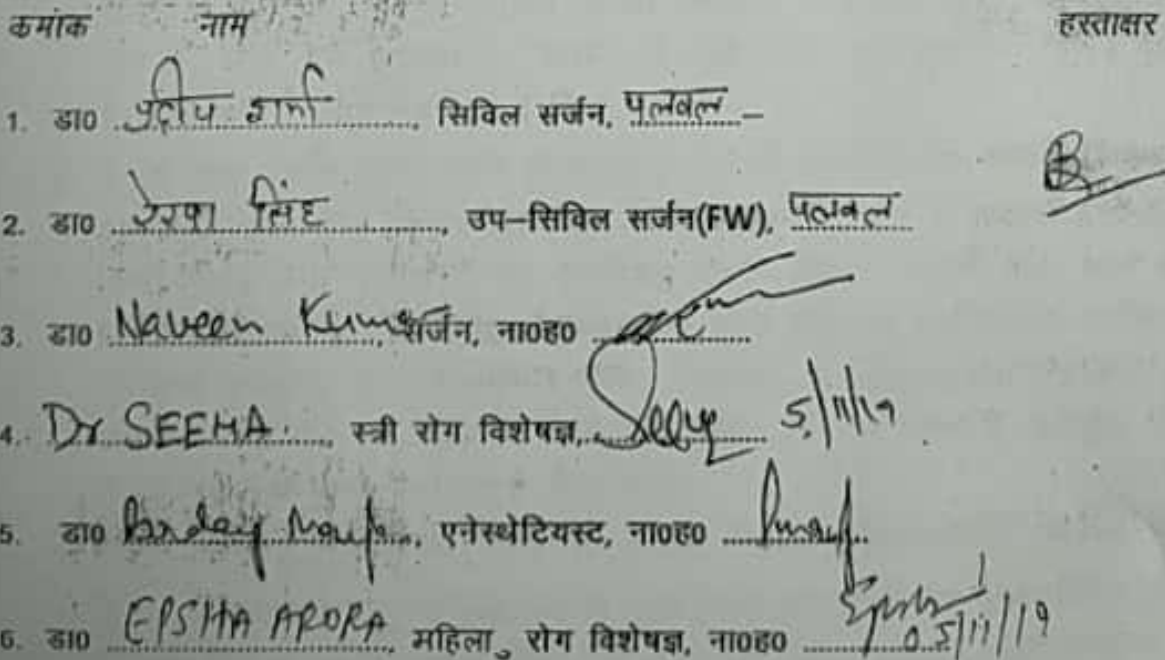 कमांक नाम हस्ताक्षर
1. डा0 प्रदीप शर्मा, सिविल सर्जन, पलवल –
2. डा0 रेखा सिंह, उप–सिविल सर्जन(FW), पलवल
3. डा0 Naveen Kumar, सर्जन, ना0ह0
4. Dr SEEMA, स्त्री रोग विशेषज्ञ, 5/11/19
5. डा0, एनेस्थेटियस्ट, ना0ह0
6. डा0 EPSHA ARORA, महिला, रोग विशेषज्ञ, ना0ह0 05/11/19